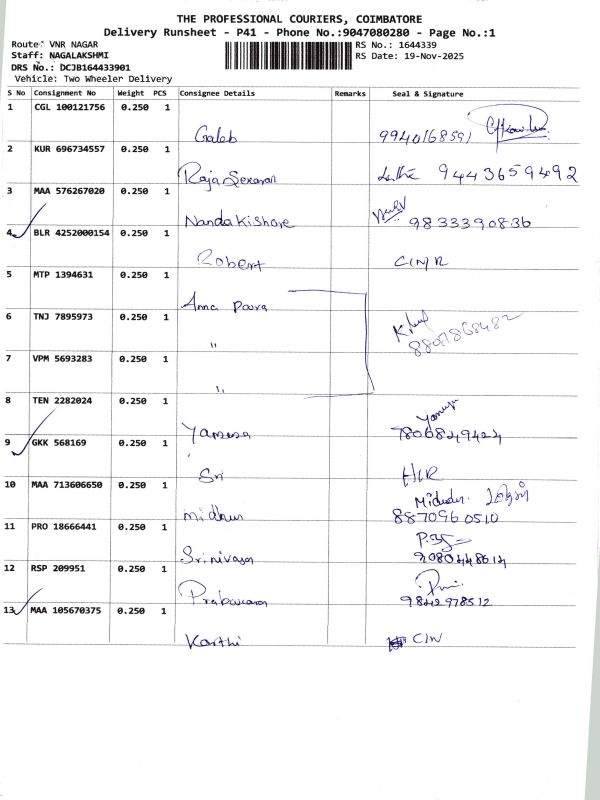 THE PROFESSIONAL COURIERS, COIMBATORE
Delivery Runsheet - P41 - Phone No.:9047080280 - Page No.:1
Route: VNR NAGAR
RS No.: 1644339
Staff: NAGALAKSHMI
RS Date: 19-Nov-2025
DRS No.: DCJB164433901
Vehicle: Two Wheeler Delivery
S No Consignment No Weight PCS Consignee Details Remarks Seal & Signature
1 CGL 100121756 0.250 1
Galeb 9940168591
2 KUR 696734557 0.250 1
Raja Sekaran 9443659492
3 MAA 576267020 0.250 1
Nanda Kishore 9833390836
4 BLR 4252000154 0.250 1
Robert C/N/R
5 MTP 1394631 0.250 1
Anna Poora
6 TNJ 7895973 0.250 1
" 8807868482
7 VPM 5693283 0.250 1
"
8 TEN 2282024 0.250 1
7806849424
9 GKK 568169 0.250 1
Sri H/R
10 MAA 713606650 0.250 1
Midhun 8870960510
11 PRO 18666441 0.250 1
Srinivasan 9080448614
12 RSP 209951 0.250 1
Prabakaran 9842978512
13 MAA 105670375 0.250 1
Karthi C/N